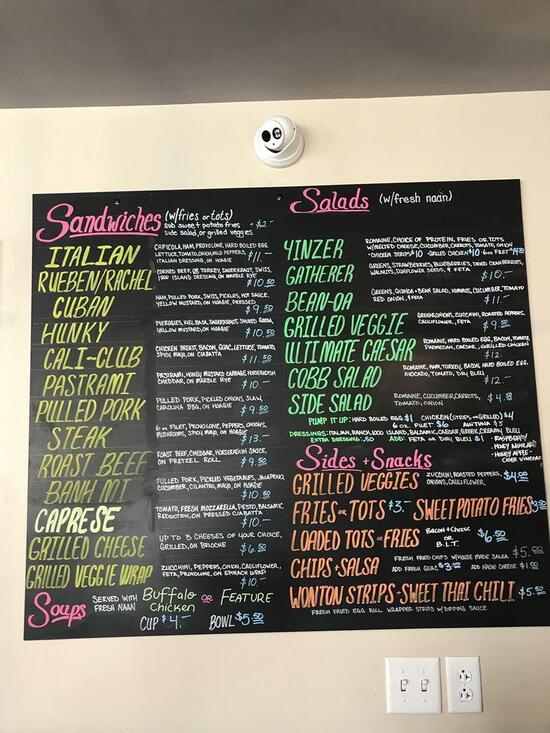 Sandwiches (w/fries or tots)
sub sweet potato fries
side salad, or grilled veggies + $2.-
ITALIAN CAPICOLA, HAM, PROVOLONE, HARD BOILED EGG
LETTUCE, TOMATO, ONION, MILD PEPPERS,
ITALIAN DRESSING, ON HOAGIE $11.-
RUEBEN/RACHEL CORNED BEEF, OR TURKEY, SAUERKRAUT, SWISS,
1000 ISLAND DRESSING, ON MARBLE RYE $10.50
CUBAN HAM, PULLED PORK, SWISS, PICKLES, HOT SAUCE,
YELLOW MUSTARD, ON HOAGIE $9.50
HUNKY PIEROGIES, KIELBASA, SAUERKRAUT, SMOKED GOUDA,
YELLOW MUSTARD, ON HOAGIE $10.50
CALI-CLUB CHICKEN BREAST, BACON, GUAC, LETTUCE, TOMATO,
SPICY MAYO, ON CIABATTA $11.50
PASTRAMI PASTRAMI, HONEY MUSTARD CABBAGE, HORSERADISH
CHEDDAR, ON MARBLE RYE $10.-
PULLED PORK PULLED PORK, PICKLED ONIONS, SLAW,
CAROLINA BBQ, ON HOAGIE $9.50
STEAK 6 oz FILET, PROVOLONE, PEPPERS, ONIONS,
MUSHROOMS, SPICY MAYO, ON HOAGIE $13.-
ROAST BEEF ROAST BEEF, CHEDDAR, HORSERADISH SAUCE,
ON PRETZEL ROLL $9.50
BANH MI PULLED PORK, PICKLED VEGETABLES, JALAPENO,
CUCUMBER, CILANTRO, MAYO, ON HOAGIE $10.50
CAPRESE TOMATO, FRESH MOZZARELLA, PESTO, BALSAMIC
REDUCTION, ON PRESSED CIABATTA $10.-
GRILLED CHEESE UP TO 3 CHEESES OF YOUR CHOICE,
GRILLED, ON BRIOCHE $6.50
GRILLED VEGGIE WRAP ZUCCHINI, PEPPERS, ONION, CAULIFLOWER,
FETA, PROVOLONE, ON SPINACH WRAP $10.-
Soups SERVED WITH FRESH NAAN Buffalo Chicken OR FEATURE
CUP $4.- BOWL $5.50
Salads (w/fresh naan)
YINZER ROMAINE, CHOICE OF PROTEIN, FRIES OR TOTS
W/MELTED CHEESE, CUCUMBER, CARROTS, TOMATO, ONION
GATHERER GREENS, STRAWBERRIES, BLUEBERRIES, DRIED CRANBERRIES,
WALNUTS, SUNFLOWER SEEDS, + FETA $10.-
BEAN-OA GREENS, QUINOA + BEAN SALAD, HUMMUS, CUCUMBER, TOMATO
RED ONION, + FETA $11.-
GRILLED VEGGIE GREENS, ONIONS, ZUCCHINI, ROASTED PEPPERS,
CAULIFLOWER, + FETA $9.50
ULTIMATE CAESAR ROMAINE, HARD BOILED EGG, BACON, TOMATO
PARMESAN, CAESAR, GRILLED CHICKEN $12.
COBB SALAD ROMAINE, HAM, TURKEY, BACON, HARD BOILED EGG,
AVOCADO, TOMATO, DRY BLEU $12.-
SIDE SALAD ROMAINE, CUCUMBER, CARROT
TOMATO, ONION $4.
PUMP IT UP: HARD BOILED EGG $1 CHICKEN (STRIPS or GRILLED) $4
6 oz FILET $6 AHI TUNA $5
DRESSINGS: ITALIAN, RANCH, 1000 ISLAND, BALSAMIC, CAESAR, GREEK, CREAMY BLEU
RASPBERRY
HONEY MUSTARD
HONEY APPLE-
CIDER VINEGAR
EXTRA DRESSING .50 ADD: FETA OR DRY BLEU $1
Sides + Snacks
GRILLED VEGGIES ZUCCHINI, ROASTED PEPPERS,
ONIONS, CAULIFLOWER $4.00
FRIES OR TOTS $3.- SWEET POTATO FRIES
LOADED TOTS OR FRIES BACON + CHEESE
OR
B.L.T. $6.50
CHIPS + SALSA FRESH FRIED CHIPS W/HOUSE MADE SALSA $5.
ADD FRESH GUAC ADD NACHO CHEESE
WONTON STRIPS - SWEET THAI CHILI $5.50
FRESH FRIED EGG ROLL WRAPPER STRIPS W/DIPPING SAUCE